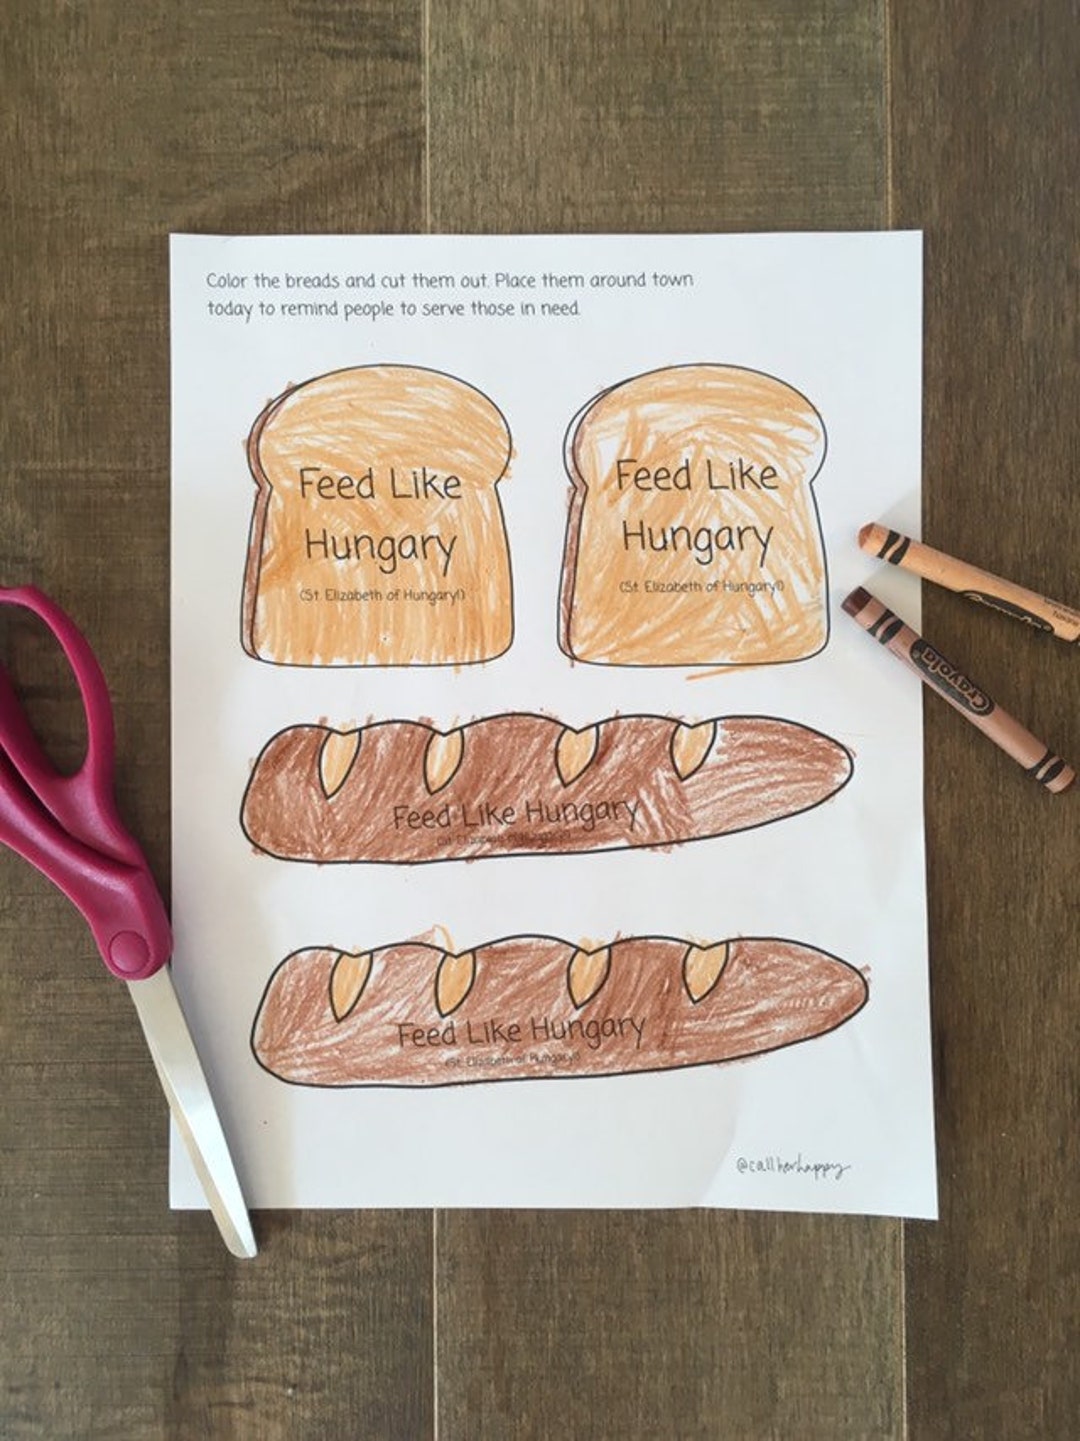 Color the breads and cut them out. Place them around town
today to remind people to serve those in need.
Feed Like
Hungary
(St. Elizabeth of Hungary!)
Feed Like
Hungary
(St. Elizabeth of Hungary!)
Crayola
Feed Like Hungary
(St. Elizabeth of Hungary!)
Feed Like Hungary
(St. Elizabeth of Hungary!)
@callherhappy